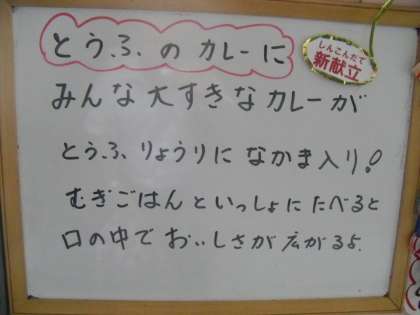 とうふのカレーに
しんこんだて
新献立
みんな大すきなカレーが
とうふりょうりになかま入り!
むぎごはんといっしょにたべると
口の中でおいしさが広がるよ.